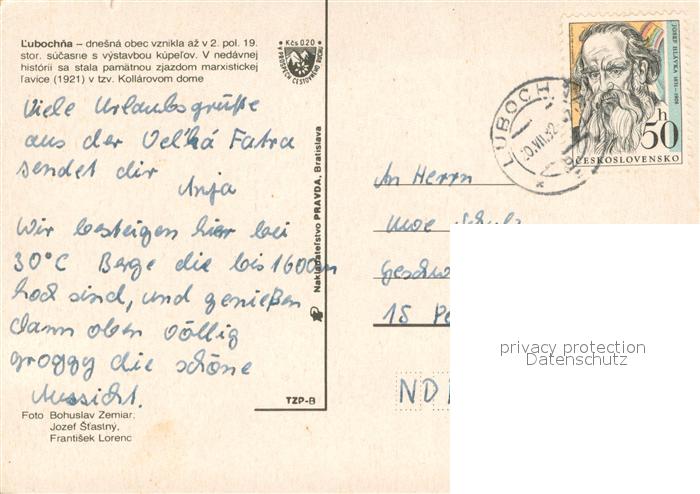 Ľubochňa – dnešná obec vznikla až v 2. pol. 19.
stor. súčasne s výstavbou kúpeľov. V nedávnej
histórii sa stala pamätnou zjazdom marxistickej
ľavice (1921) v tzv. Kollárovom dome
Kčs 0,20
V PROSPECH CESTOVNÉHO RUCHU
Viele Urlaubsgrüße
aus der Veľká Fatra
sendet dir
Anja
Wir besteigen hier bei
30°C Berge die bis 1600m
hoch sind, und genießen
dann oben völlig
groggy die schöne
Aussicht.
Foto Bohuslav Zemiar,
Jozef Šťastný,
František Lorenc
Nakladateľstvo PRAVDA, Bratislava
TZP-B
JOSEF HLÁVKA 1831–1908
50 h
ČESKOSLOVENSKO
ĽUBOCH
20.VII.82
An Herrn
Schulz
15
privacy protection
Datenschutz